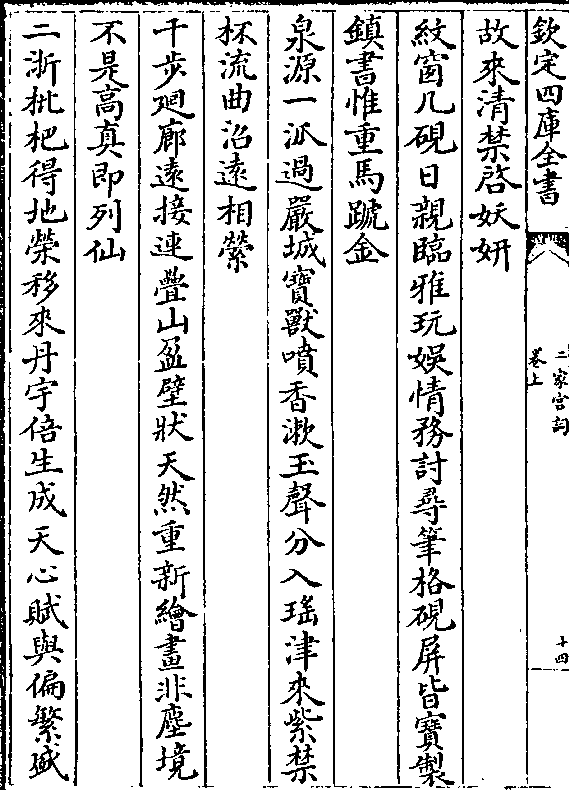 欽定四庫全書
二家宮詞
卷上
十四
故來清禁啓妖妍
紋窗几硯日親臨雅玩娛情務討尋筆格硯屏皆寶製
鎮書惟重馬蹏金
泉源一派過嚴城寶獸噴香漱玉聲分入瑤津來紫禁
杯流曲沼遠相縈
千步廻廊遠接連疊山盈壁狀天然重新繪畫非塵境
不是高真即列仙
二浙枇杷得地榮移來丹宇倍生成天心賦與偏繁盛